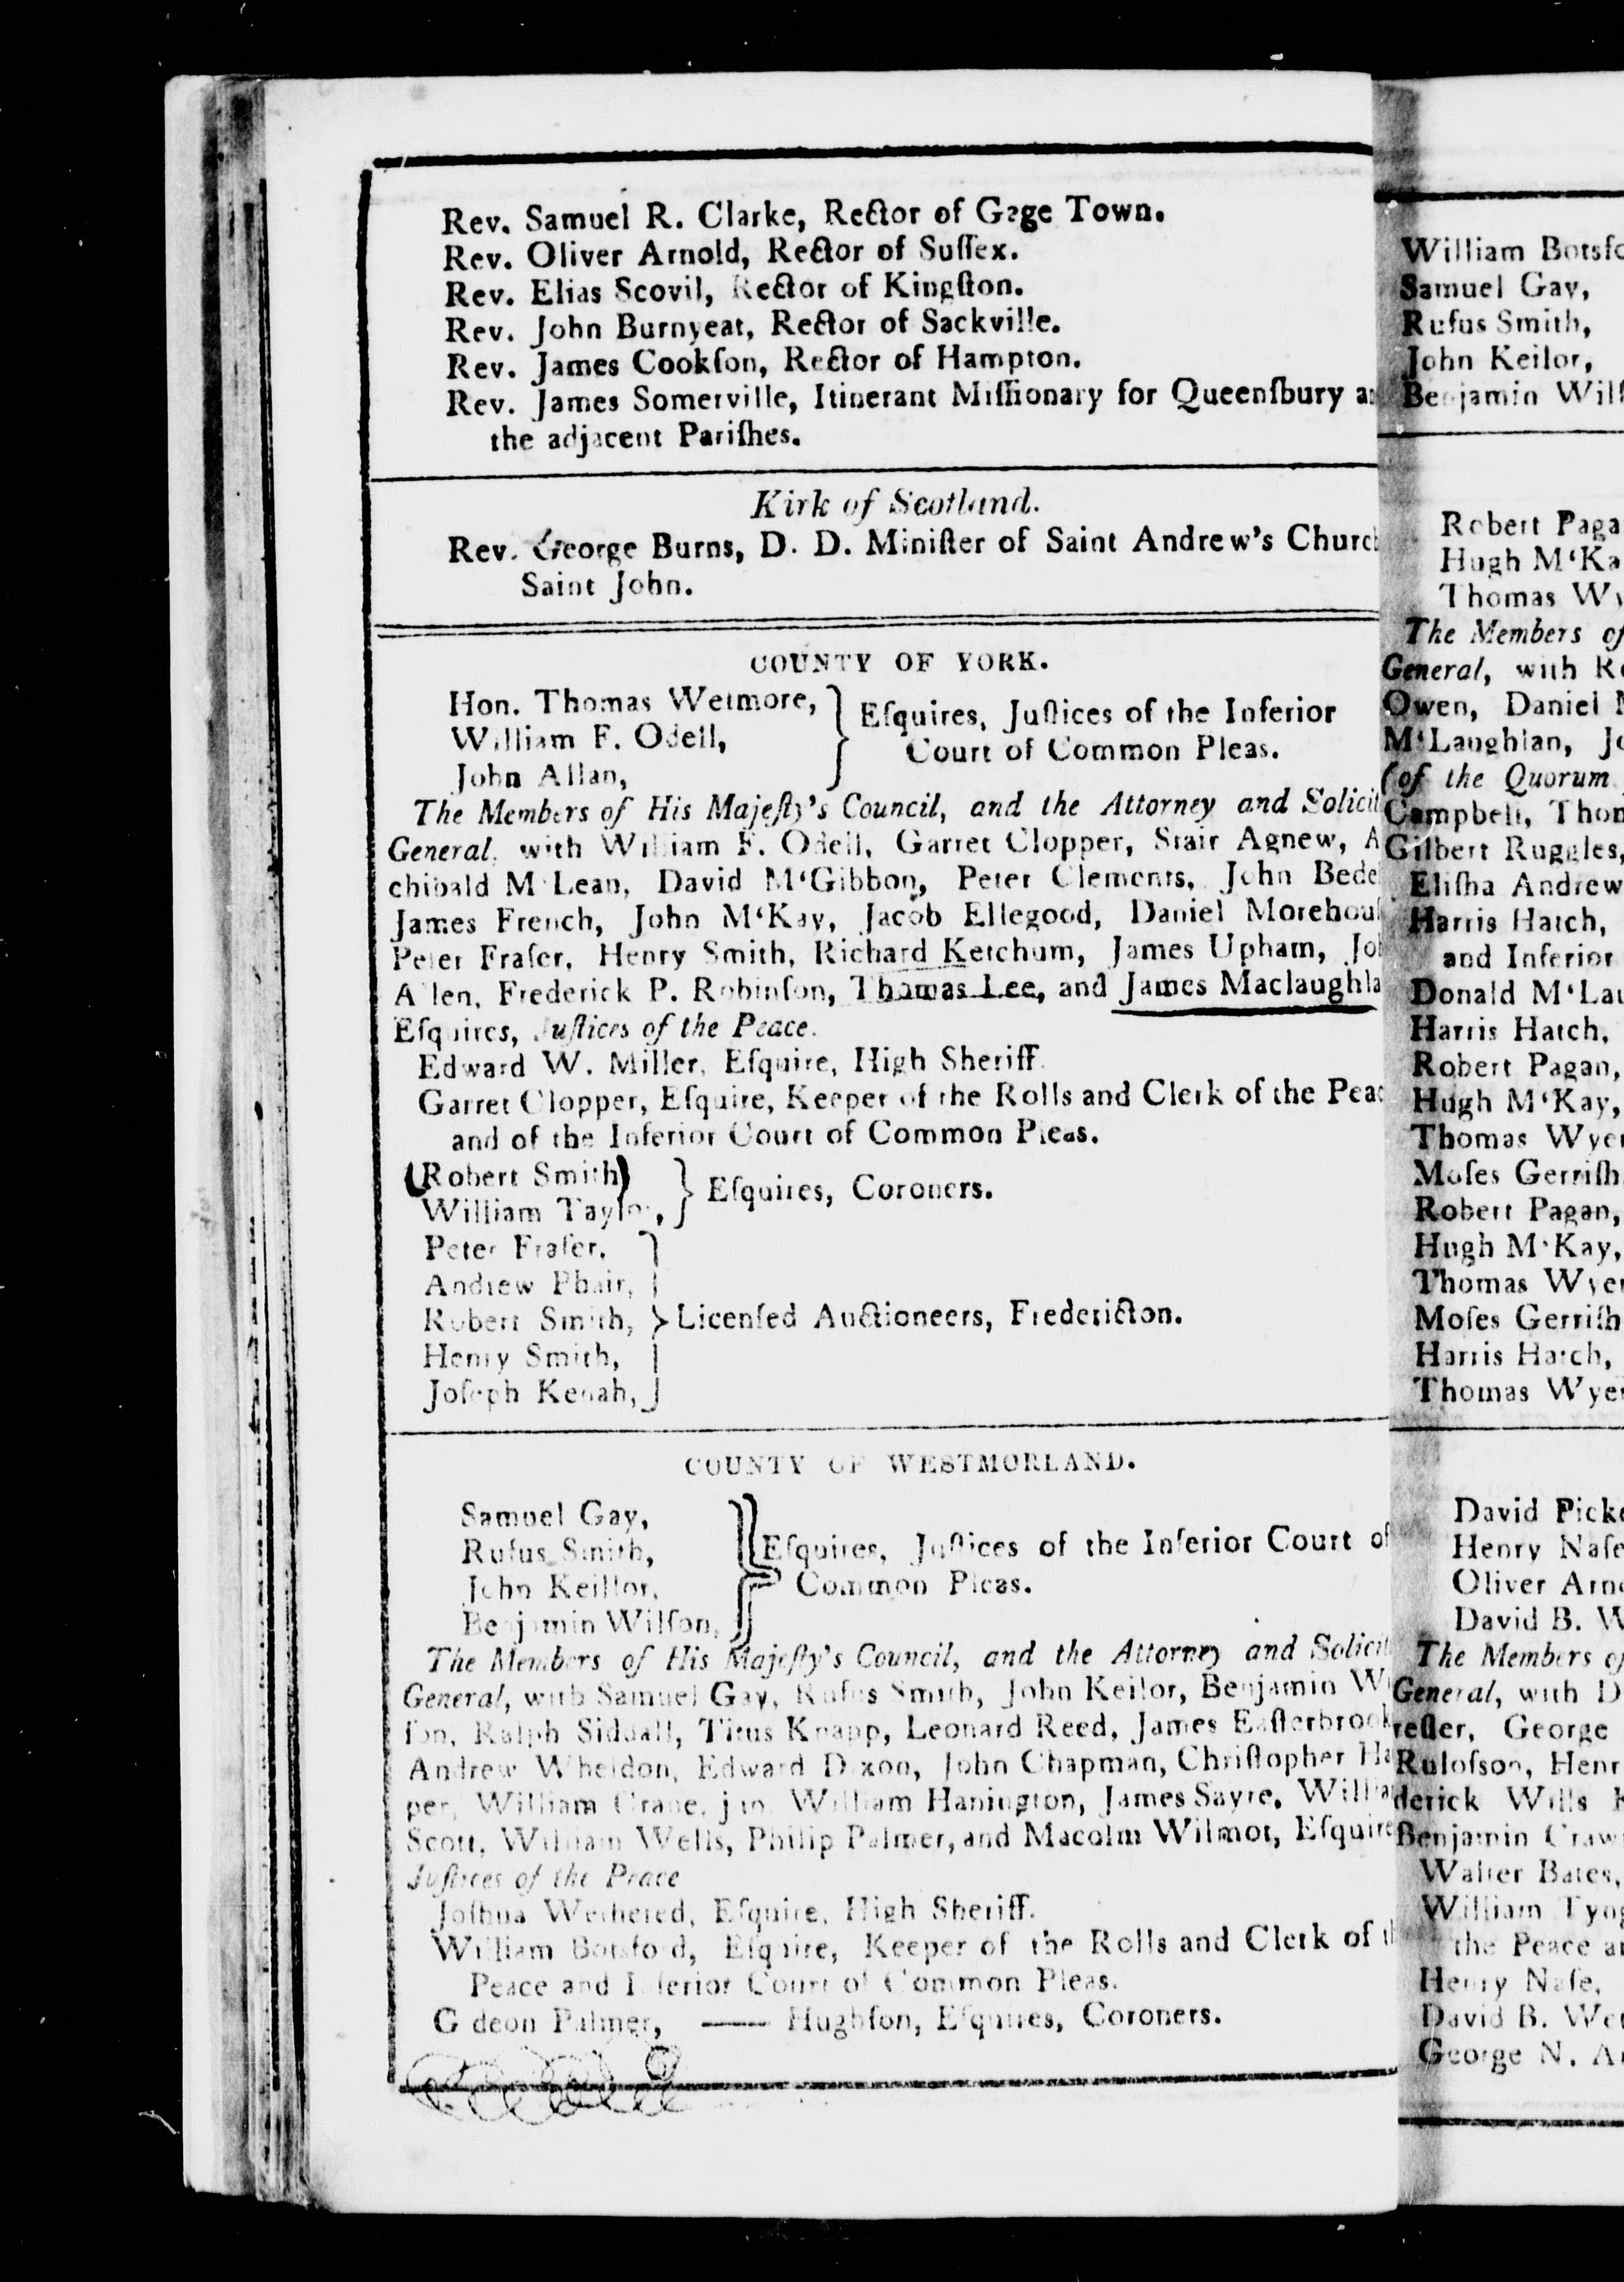 Rev. Samuel R. Clarke, Rector of Gage Town.
Rev. Oliver Arnold, Rector of Suſſex.
Rev. Elias Scovil, Rector of Kingſton.
Rev. John Burnyeat, Rector of Sackville.
Rev. James Cookſon, Rector of Hampton.
Rev. James Somerville, Itinerant Miſſionary for Queenſbury
the adjacent Pariſhes.
Kirk of Scotland.
Rev. George Burns, D. D. Miniſter of Saint Andrew's Churc
Saint John.
COUNTY OF YORK.
Hon. Thomas Wetmore,
William F. Odell,
John Allan,
Eſquires, Juſtices of the Inferior
Court of Common Pleas.
The Members of His Majeſty's Council, and the Attorney and Solicit
General, with William F. Odell, Garret Clopper, Stair Agnew, A
chibald M'Lean, David M'Gibbon, Peter Clements, John Bede
James French, John M'Kay, Jacob Ellegood, Daniel Morehouſ
Peter Fraſer, Henry Smith, Richard Ketchum, James Upham, Jo
Allen, Frederick P. Robinſon, Thomas Lee, and James Maclaughla
Eſquires, Juſtices of the Peace.
Edward W. Miller, Eſquire, High Sheriff.
Garret Clopper, Eſquire, Keeper of the Rolls and Clerk of the Peac
and of the Inferior Court of Common Pleas.
(Robert Smith)
William Taylor,
Eſquires, Coroners.
Peter Fraſer,
Andrew Phair,
Robert Smith,
Henry Smith,
Joſeph Kenah,
Licenſed Auctioneers, Fredericton.
COUNTY OF WESTMORLAND.
Samuel Gay,
Rufus Smith,
John Keillor,
Benjamin Wilſon,
Eſquires, Juſtices of the Inferior Court of
Common Pleas.
The Members of His Majeſty's Council, and the Attorney and Solicit
General, with Samuel Gay, Rufus Smith, John Keilor, Benjamin W
ſon, Ralph Siddall, Titus Knapp, Leonard Reed, James Eaſterbrook
Andrew Wheldon, Edward Dixon, John Chapman, Chriſtopher Ha
per, William Crane, jun. William Hanington, James Sayre, Willia
Scott, William Wells, Philip Palmer, and Macolm Wilmot, Eſquire
Juſtices of the Peace
Joſhua Wethered, Eſquire, High Sheriff.
William Botsford, Eſquire, Keeper of the Rolls and Clerk of th
Peace and Inferior Court of Common Pleas.
Gideon Palmer, —— Hughſon, Eſquires, Coroners.
William Botsfo
Samuel Gay,
Rufus Smith,
John Keilor,
Benjamin Wilſ
Robert Paga
Hugh M'Ka
Thomas Wy
The Members of
General, with Ro
Owen, Daniel M
M'Laughlan, Jo
(of the Quorum
Campbell, Thom
Gilbert Ruggles,
Eliſha Andrew
Harris Hatch,
and Inferior
Donald M'Lau
Harris Hatch,
Robert Pagan,
Hugh M'Kay,
Thomas Wyer
Moſes Gerriſh
Robert Pagan,
Hugh M'Kay,
Thomas Wyer
Moſes Gerriſh
Harris Hatch,
Thomas Wyer
David Picke
Henry Naſe
Oliver Arno
David B. W
The Members of
General, with D
reſter, George
Ruloſson, Henr
derick Wills K
Benjamin Craw
Walter Bates,
William Tyng
the Peace an
Henry Naſe,
David B. Wet
George N. A